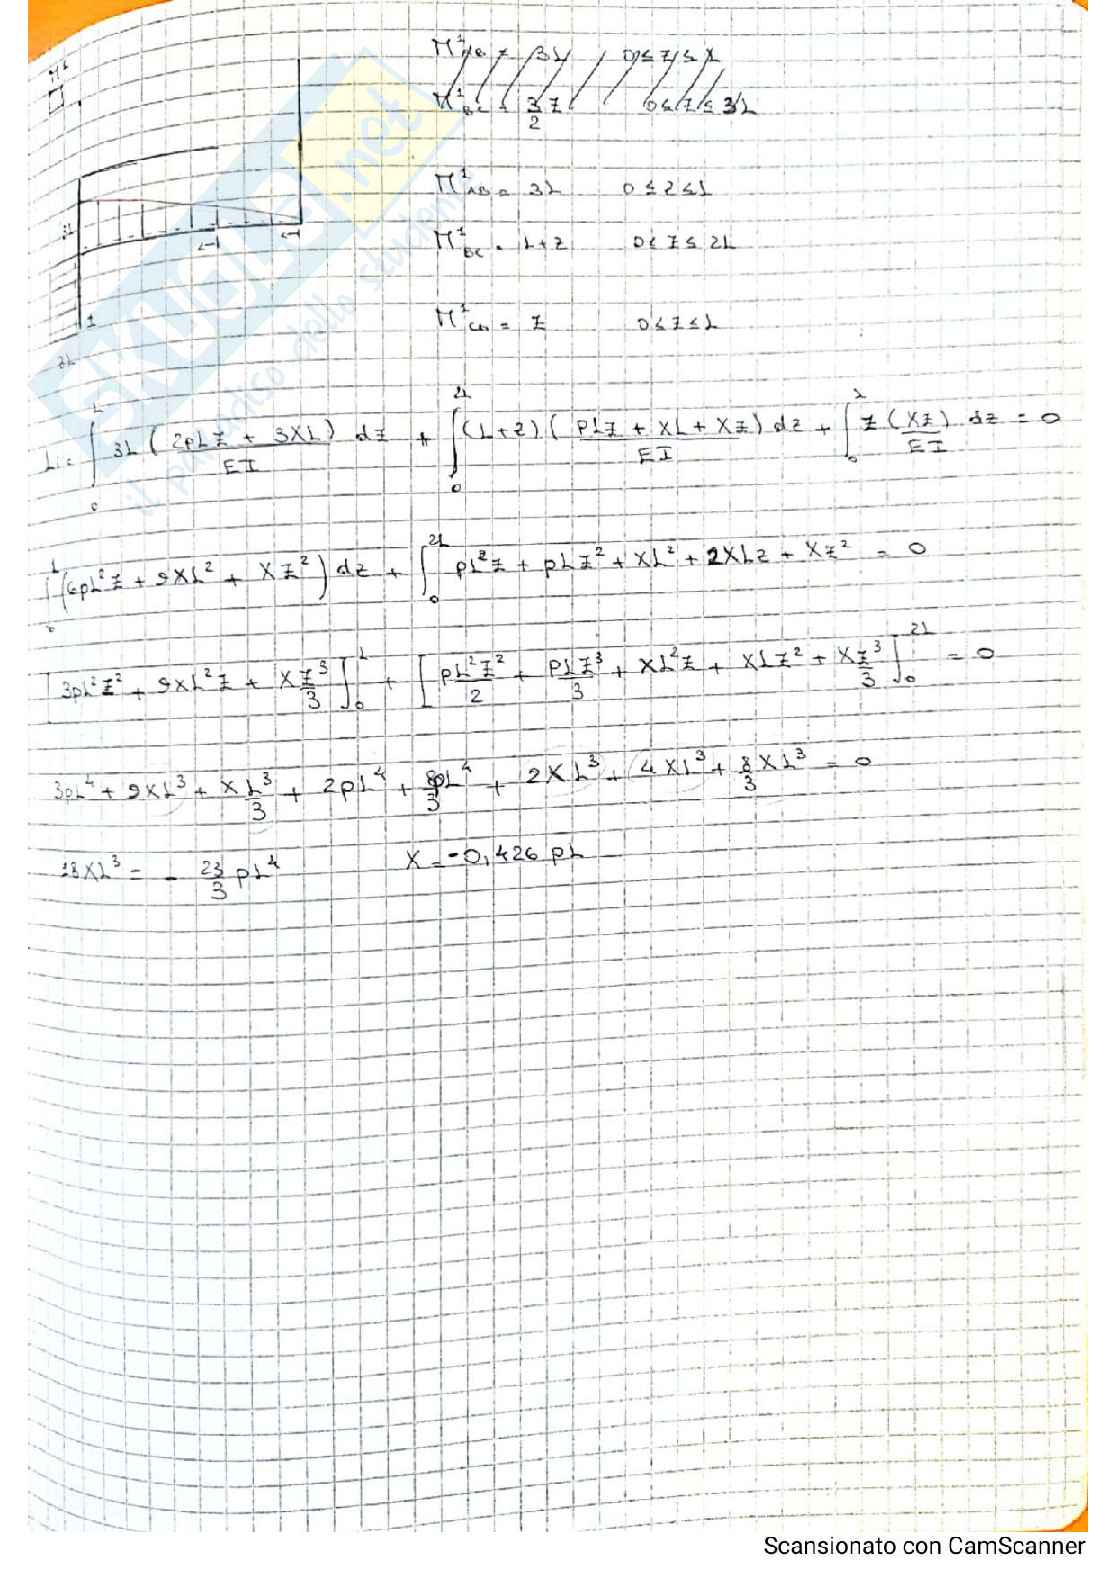 M¹
M¹AB = 3L 0≤z≤x
M¹BC = 3/2 z 0≤z≤3L
M¹AB = 3L 0≤z≤L
M¹BC = L+z 0<z≤2L
3L
1
M¹CD = z 0≤z≤L
3L
L = ∫₀ᴸ 3L (2pLz + 3XL)/EI dz + ∫₀²ᴸ (L+z) (pLz + XL + Xz)/EI dz + ∫₀ᴸ z (Xz)/EI dz = 0
∫₀ᴸ (6pL²z + 9XL² + Xz²) dz + ∫₀²ᴸ pL²z + pLz² + XL² + 2XLz + Xz² = 0
3pL²z² + 9XL²z + Xz³/3 ]₀ᴸ + [ pL²z²/2 + pLz³/3 + XL²z + XLz² + Xz³/3 ]₀²ᴸ = 0
3pL⁴ + 9XL³ + XL³/3 + 2pL⁴ + 8/3 pL⁴ + 2XL³ + 4XL³ + 8/3 XL³ = 0
18XL³ = - 23/3 pL⁴ X = -0,426 pL
skuola.net
il paradiso dello studente
Scansionato con CamScanner